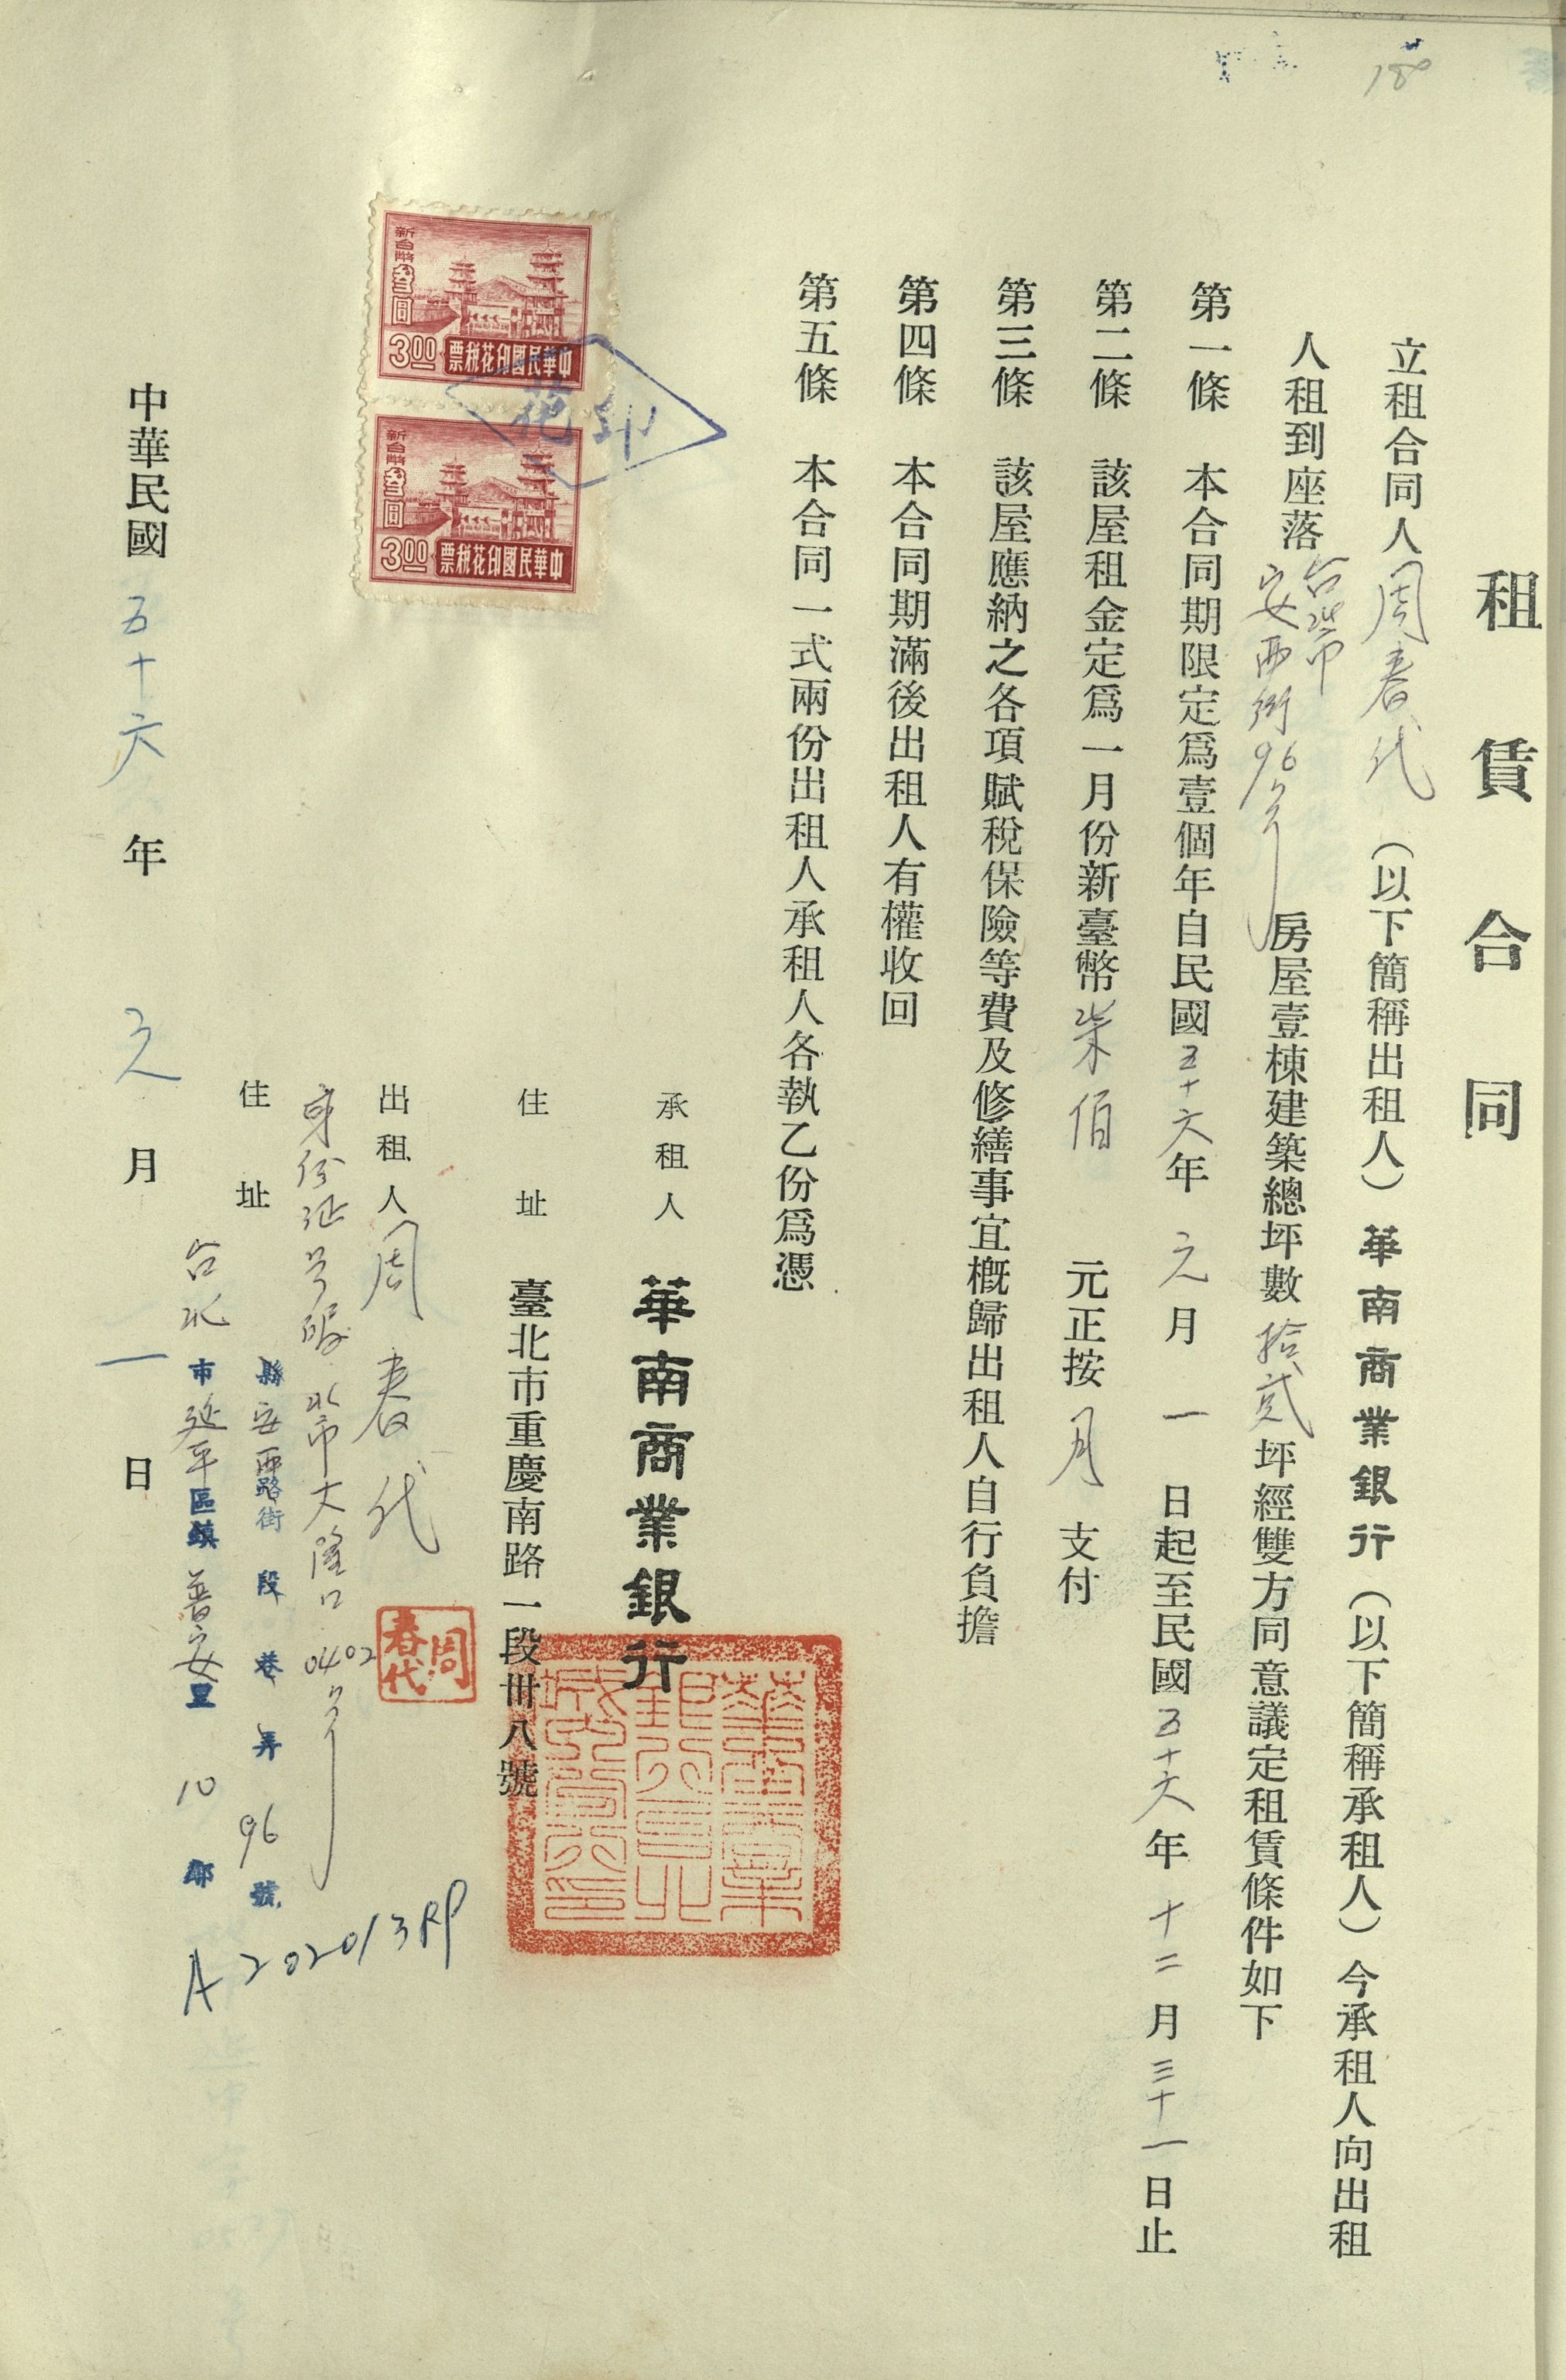 180
租賃合同
立租合同人周春代(以下簡稱出租人)華南商業銀行(以下簡稱承租人)今承租人向出租
人租到座落台北市安西街96号房屋壹棟建築總坪數拾貳坪經雙方同意議定租賃條件如下
第一條 本合同期限定爲壹個年自民國五十六年元月一日起至民國五十六年十二月三十一日止
第二條 該屋租金定爲一月份新臺幣柒佰元正按月支付
第三條 該屋應納之各項賦稅保險等費及修繕事宜概歸出租人自行負擔
第四條 本合同期滿後出租人有權收回
第五條 本合同一式兩份出租人承租人各執乙份爲憑
承租人 華南商業銀行
住址 臺北市重慶南路一段卅八號
出租人 周春代
周春代
身份証号碼 北市大隆口0402号
住址
縣安西路街 段 巷 弄96號
台北市延平區鎮普安里10鄰
A202013RP
中華民國五十六年元月一日
新台幣
叁圓
300
票稅花印國民華中
新台幣
叁圓
300
票稅花印國民華中
印花